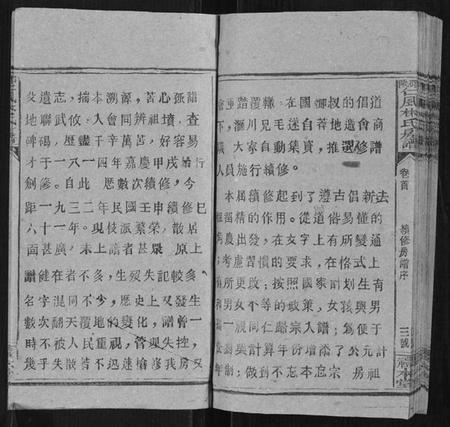 父遺志，揣本溯源，苦心孤詣
地聯武攸、大會同辨祖、查
碑碣，歷盡千辛萬苦，好容易
才于一八一四年嘉慶甲戌始行
創修。自此 歷數次續修，今
距一九三二年民國壬申續修已
六十一年。現枝派繁榮，散居
面甚廣，未上譜者甚眾。原上
譜健在者不多，生歿失記較多
名字混同不少，歷史上又發生
數次翻天覆地的變化，譜曾一
時不被人民重視，管理失控，
幾乎失散若不迅速搶修我房又
會重踏覆轍。在國自叔的倡道
下，滙川兄毛遂地造會商
議，大家自動集資，推選修譜
人員施行續修。
本屆續修起到了遵古倡新去
粗留精的作用。從道古易懂的
角度出發，在文字上有所變通
，考慮習慣的要求，在格式上也
有所更改；按照國家計劃生育
和男女平等的政策，女孩與男
一視同仁宗人譜；為便于
推測與計算年份增添了公元計
年制；做到不忘本忘宗 房祖
鳳林氏房譜
卷首
續修房譜序
三號
本堂